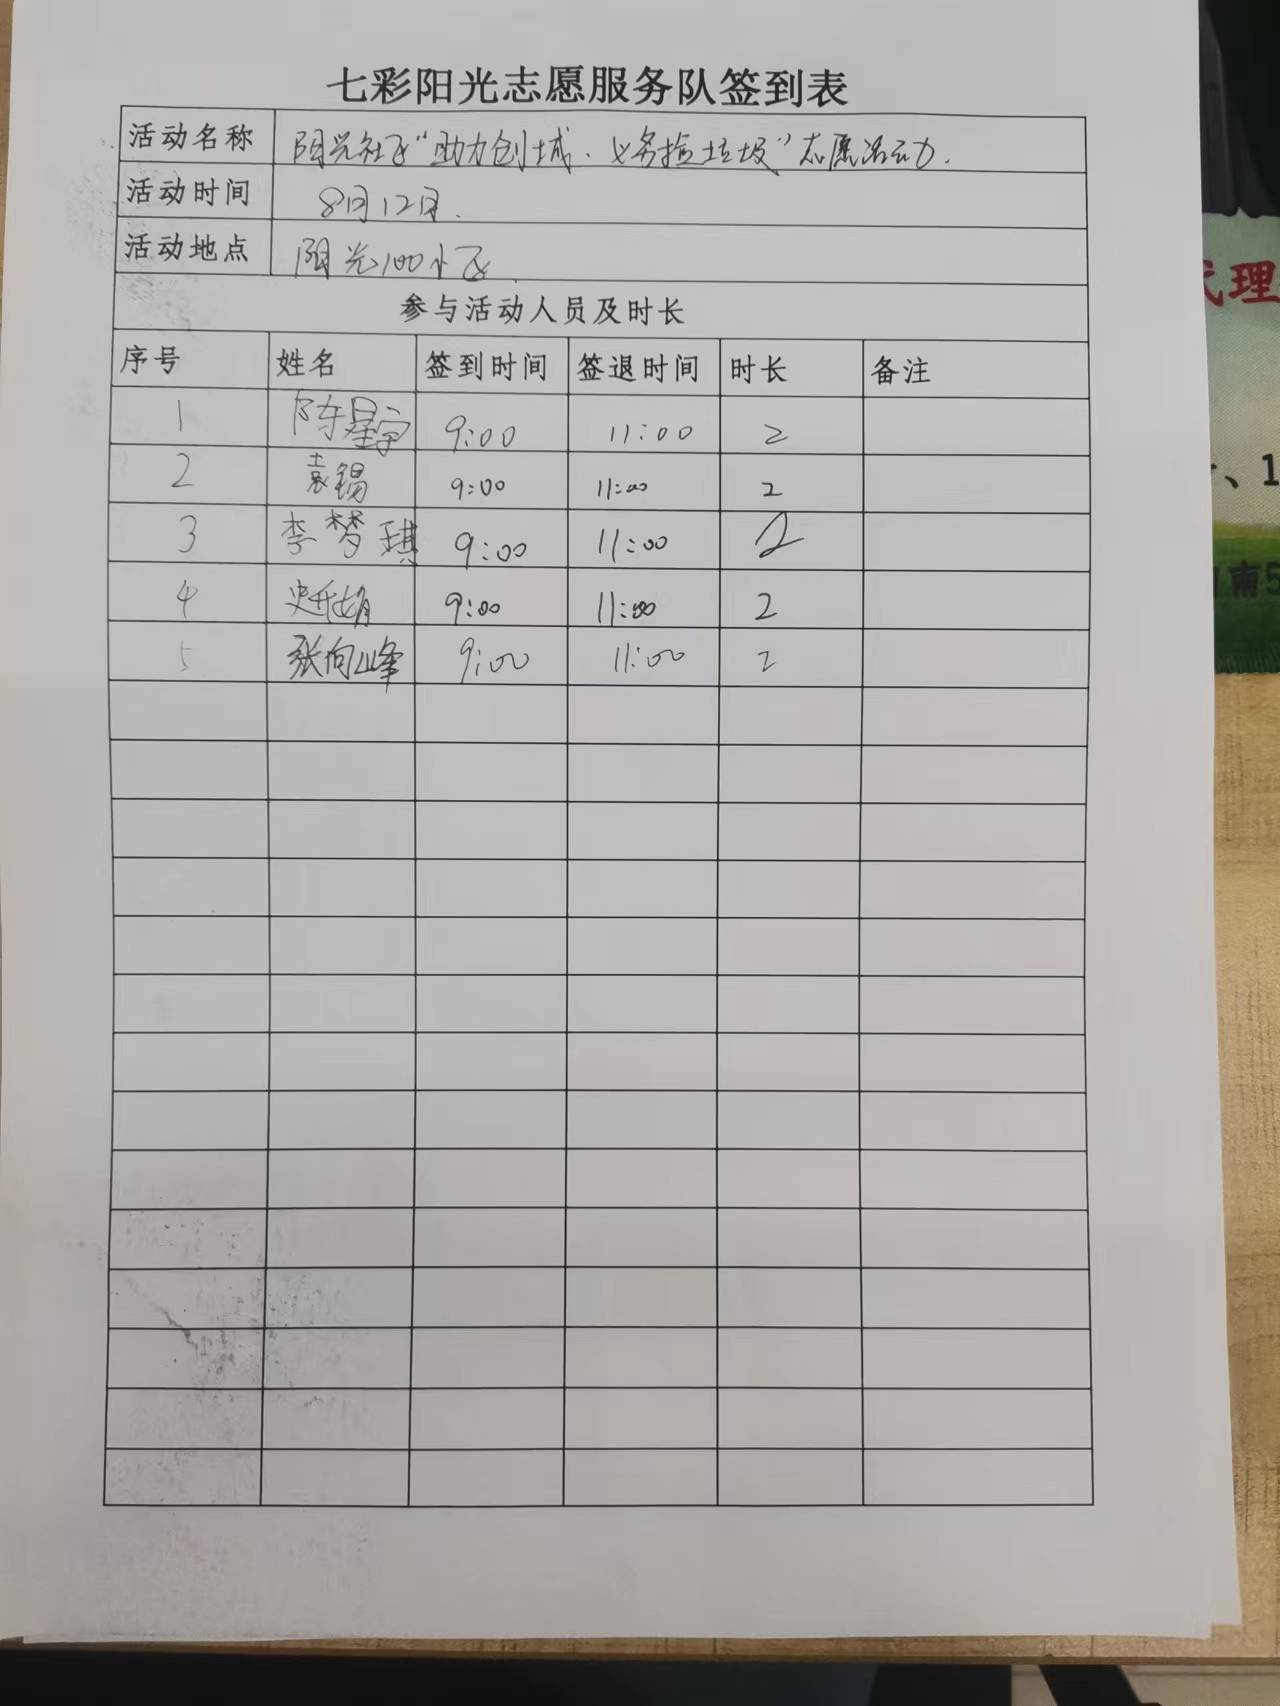 七彩阳光志愿服务队签到表
活动名称 阳光社区“助力创城、义务捡垃圾”志愿活动.
活动时间 8月12日.
活动地点 阳光100小区
参与活动人员及时长
序号 姓名 签到时间 签退时间 时长 备注
1 陈星宇 9:00 11:00 2
2 袁锡 9:00 11:00 2
3 李梦琪 9:00 11:00 2
4 9:00 11:00 2
5 张向峰 9:00 11:00 2
代理
、1
南5